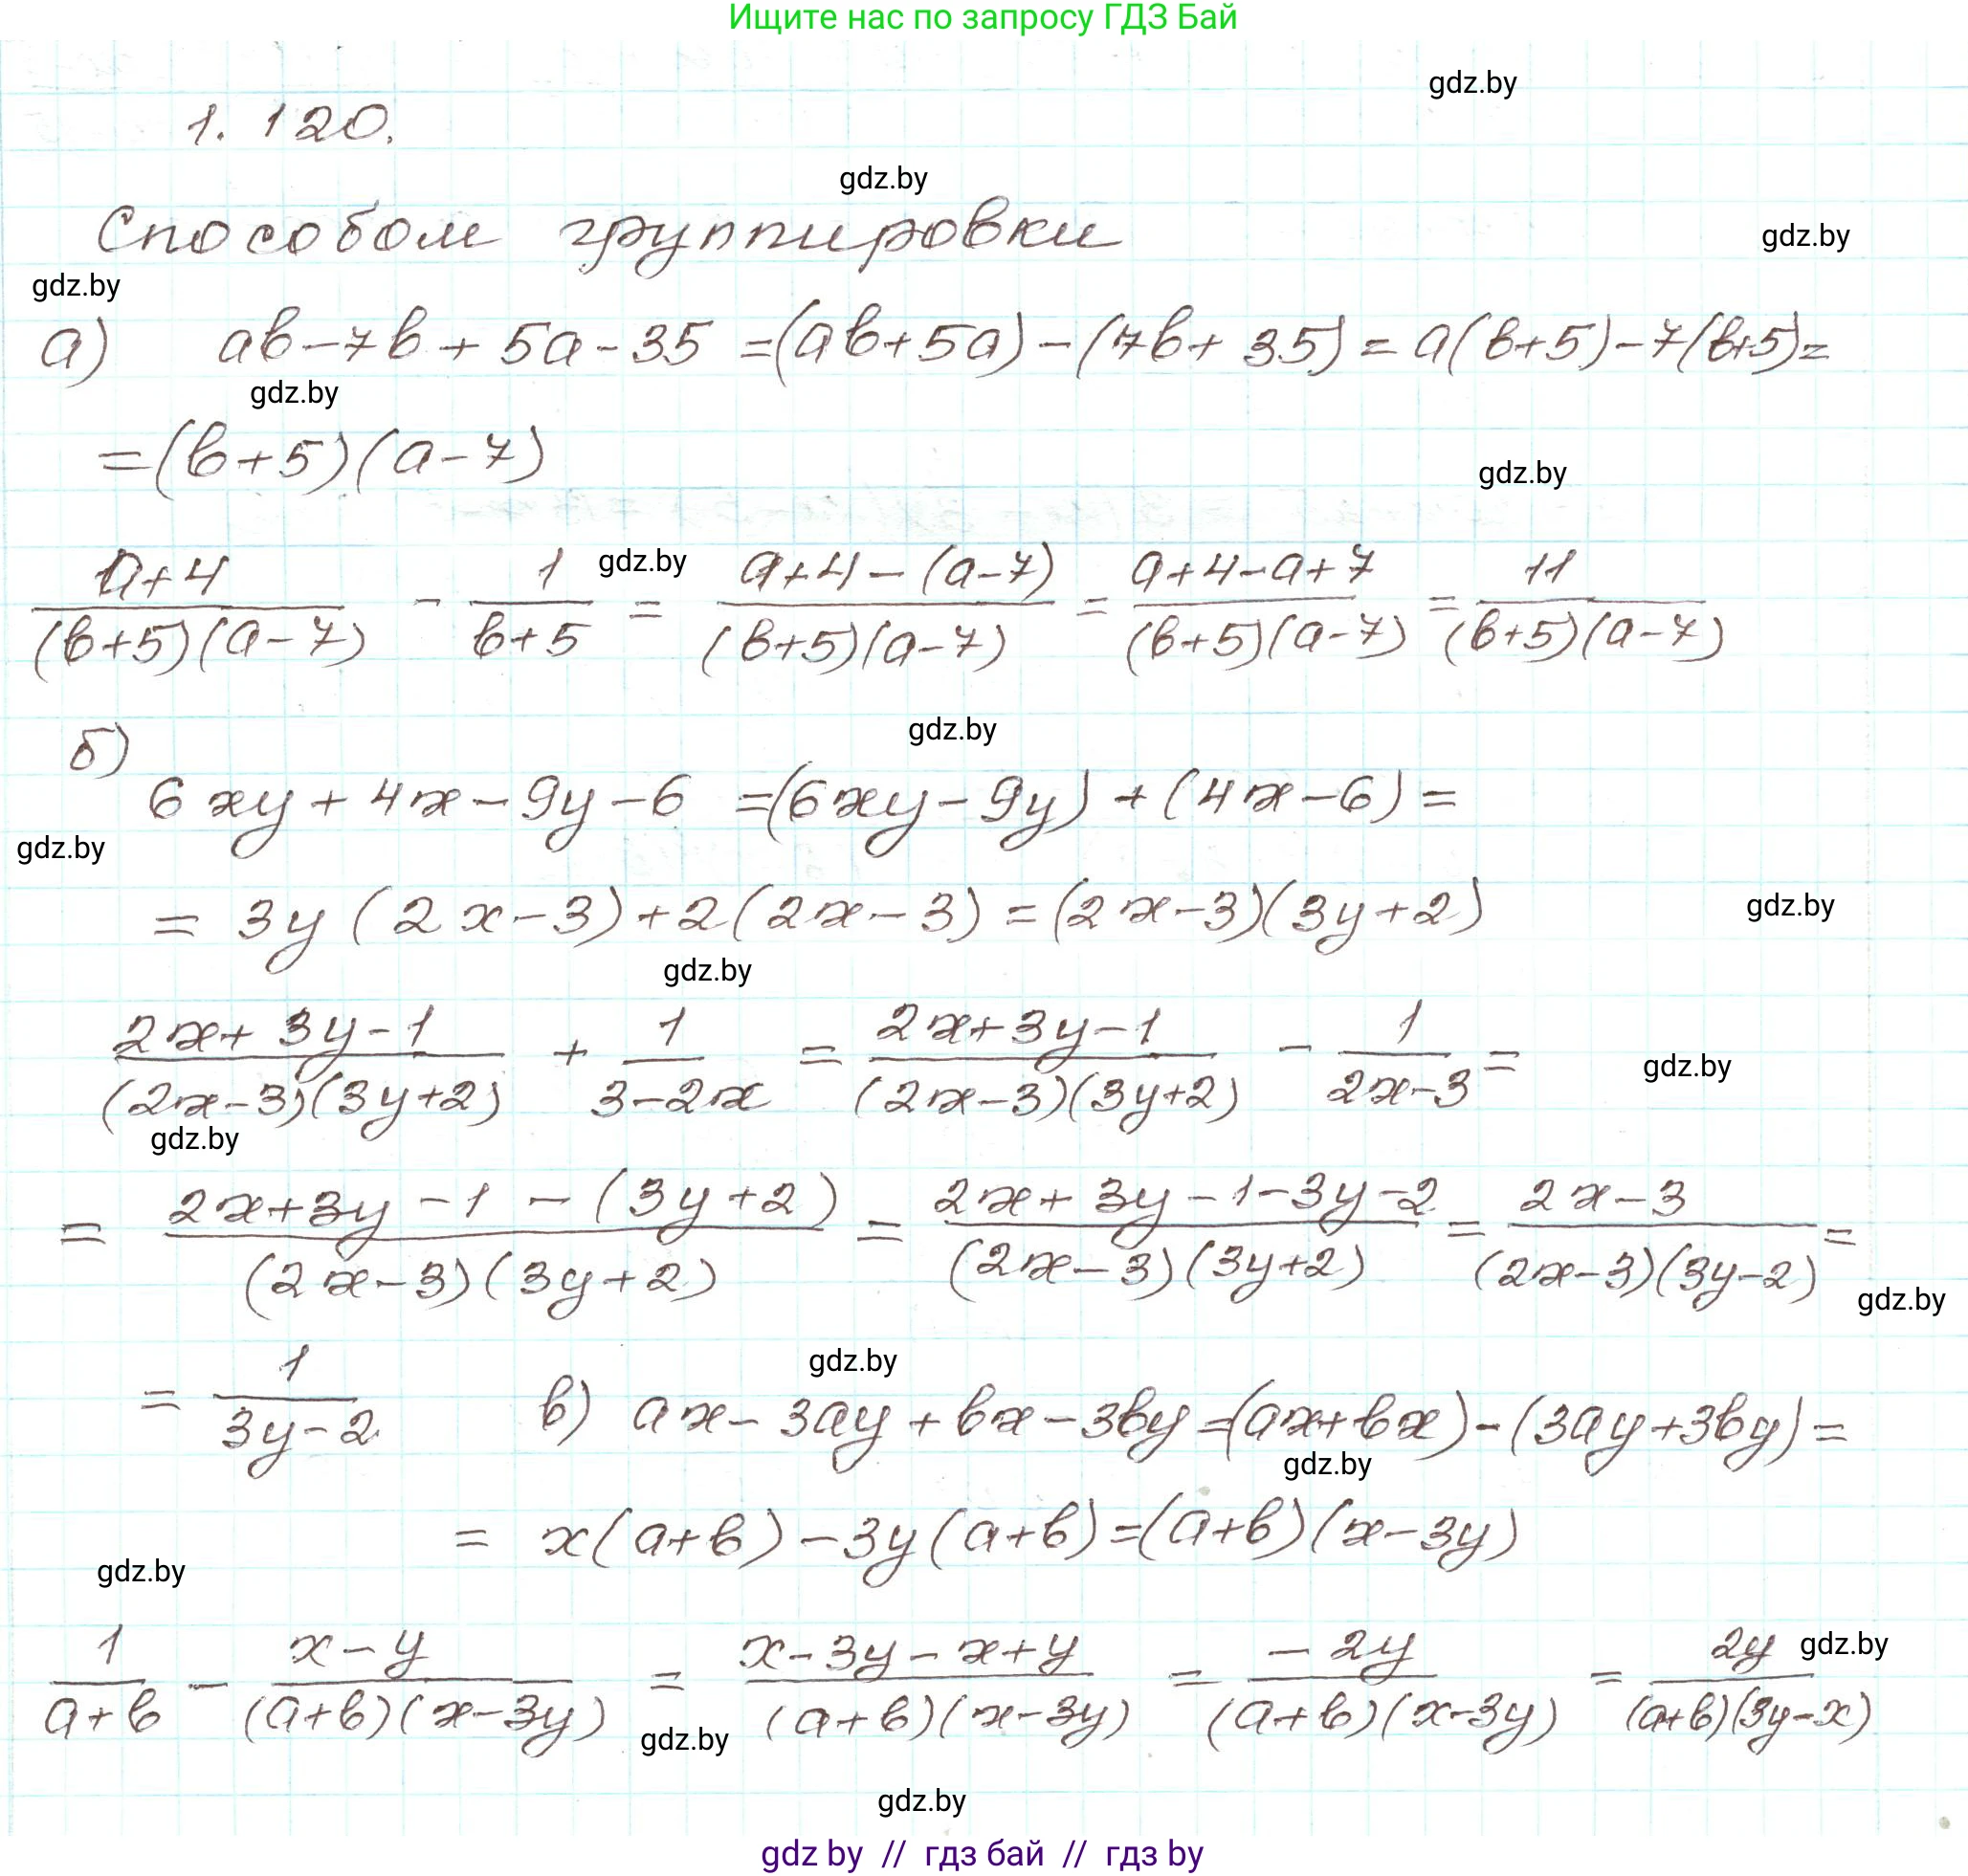 Ищите нас по запросу ГДЗ Бай
gdz.by
1. 120.
gdz.by
Способом группировки
gdz.by
gdz.by
а) ab-7b+5a-35 =(ab+5a)-(7b+35)=a(b+5)-7(b+5)=
gdz.by
=(b+5)(a-7)
gdz.by
(a+4)/((b+5)(a-7)) - 1/(b+5) = (a+4-(a-7))/((b+5)(a-7)) = (a+4-a+7)/((b+5)(a-7)) = 11/((b+5)(a-7))
gdz.by
б)
gdz.by
6xy+4x-9y-6 =(6xy-9y)+(4x-6)=
gdz.by
= 3y(2x-3)+2(2x-3)=(2x-3)(3y+2)
gdz.by
gdz.by
(2x+3y-1)/((2x-3)(3y+2)) + 1/(3-2x) = (2x+3y-1)/((2x-3)(3y+2)) - 1/(2x-3) =
gdz.by
gdz.by
= (2x+3y-1-(3y+2))/((2x-3)(3y+2)) = (2x+3y-1-3y-2)/((2x-3)(3y+2)) = (2x-3)/((2x-3)(3y-2)) =
gdz.by
gdz.by
= 1/(3y-2) в) ax-3ay+bx-3by=(ax+bx)-(3ay+3by)=
gdz.by
= x(a+b)-3y(a+b)=(a+b)(x-3y)
gdz.by
1/(a+b) - (x-y)/((a+b)(x-3y)) = (x-3y-x+y)/((a+b)(x-3y)) = (-2y)/((a+b)(x-3y)) = 2y/((a+b)(3y-x))
gdz.by
gdz.by
gdz.by
gdz by // гдз бай // гдз by